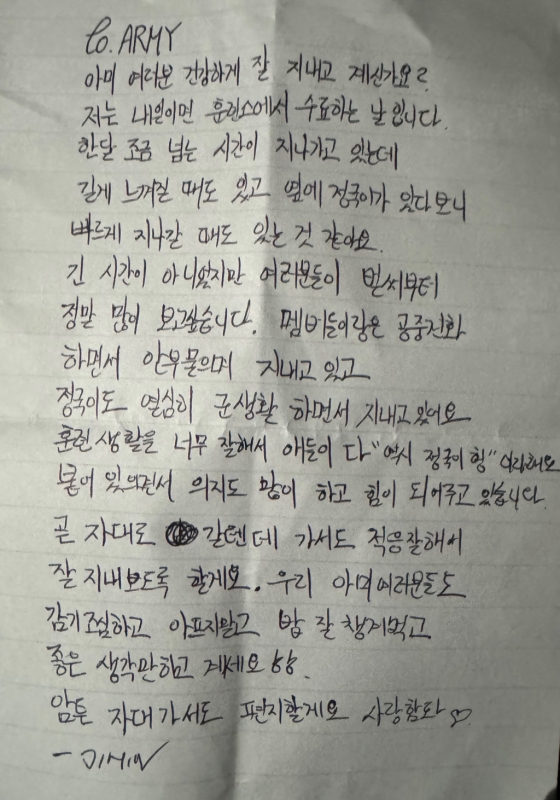 To. ARMY
아미 여러분 건강하게 잘 지내고 계신가요?
저는 내일이면 훈련소에서 수료하는 날 입니다.
한달 조금 넘는 시간이 지나가고 있는데
길게 느껴질 때도 있고 옆에 정국이가 있다보니
빠르게 지나갈 때도 있는 것 같아요.
긴 시간이 아니었지만 여러분들이 벌써부터
정말 많이 보고싶습니다. 멤버들이랑은 공중전화
하면서 안부물으며 지내고 있고
정국이도 열심히 군생활 하면서 지내고 있어요
훈련 생활을 너무 잘해서 애들이 다 "역시 정국이 형" 이라해요
붙어 있으면서 의지도 많이 하고 힘이 되어주고 있습니다.
곧 자대로 갈텐데 가서도 적응잘해서
잘 지내보도록 할게요. 우리 아미여러분들도
감기조심하고 아프지말고 밥 잘 챙겨먹고
좋은 생각만하고 계세요 ㅎㅎ.
암튼 자대가서도 편지할게요 사랑함돠 ♡
- JIMIN